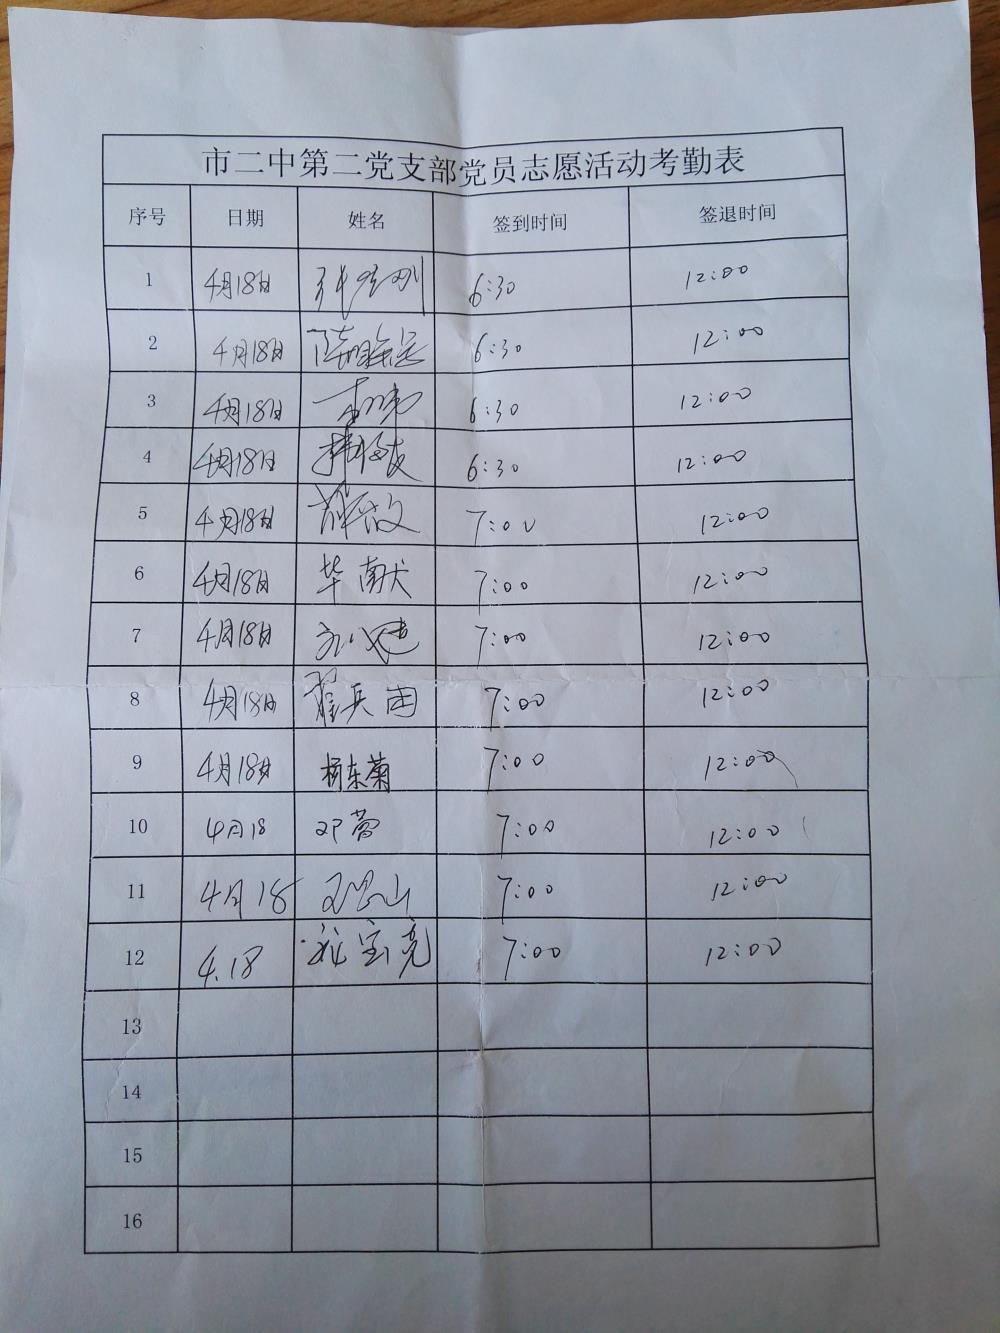 市二中第二党支部党员志愿活动考勤表
序号 日期 姓名 签到时间 签退时间
1 4月18日 6:30 12:00
2 4月18日 6:30 12:00
3 4月18日 6:30 12:00
4 4月18日 6:30 12:00
5 4月18日 7:00 12:00
6 4月18日 华献 7:00 12:00
7 4月18日 7:00 12:00
8 4月18日 7:00 12:00
9 4月18日 杨东菊 7:00 12:00
10 4月18 邓蕾 7:00 12:00
11 4月18 7:00 12:00
12 4.18 宝亮 7:00 12:00
13
14
15
16